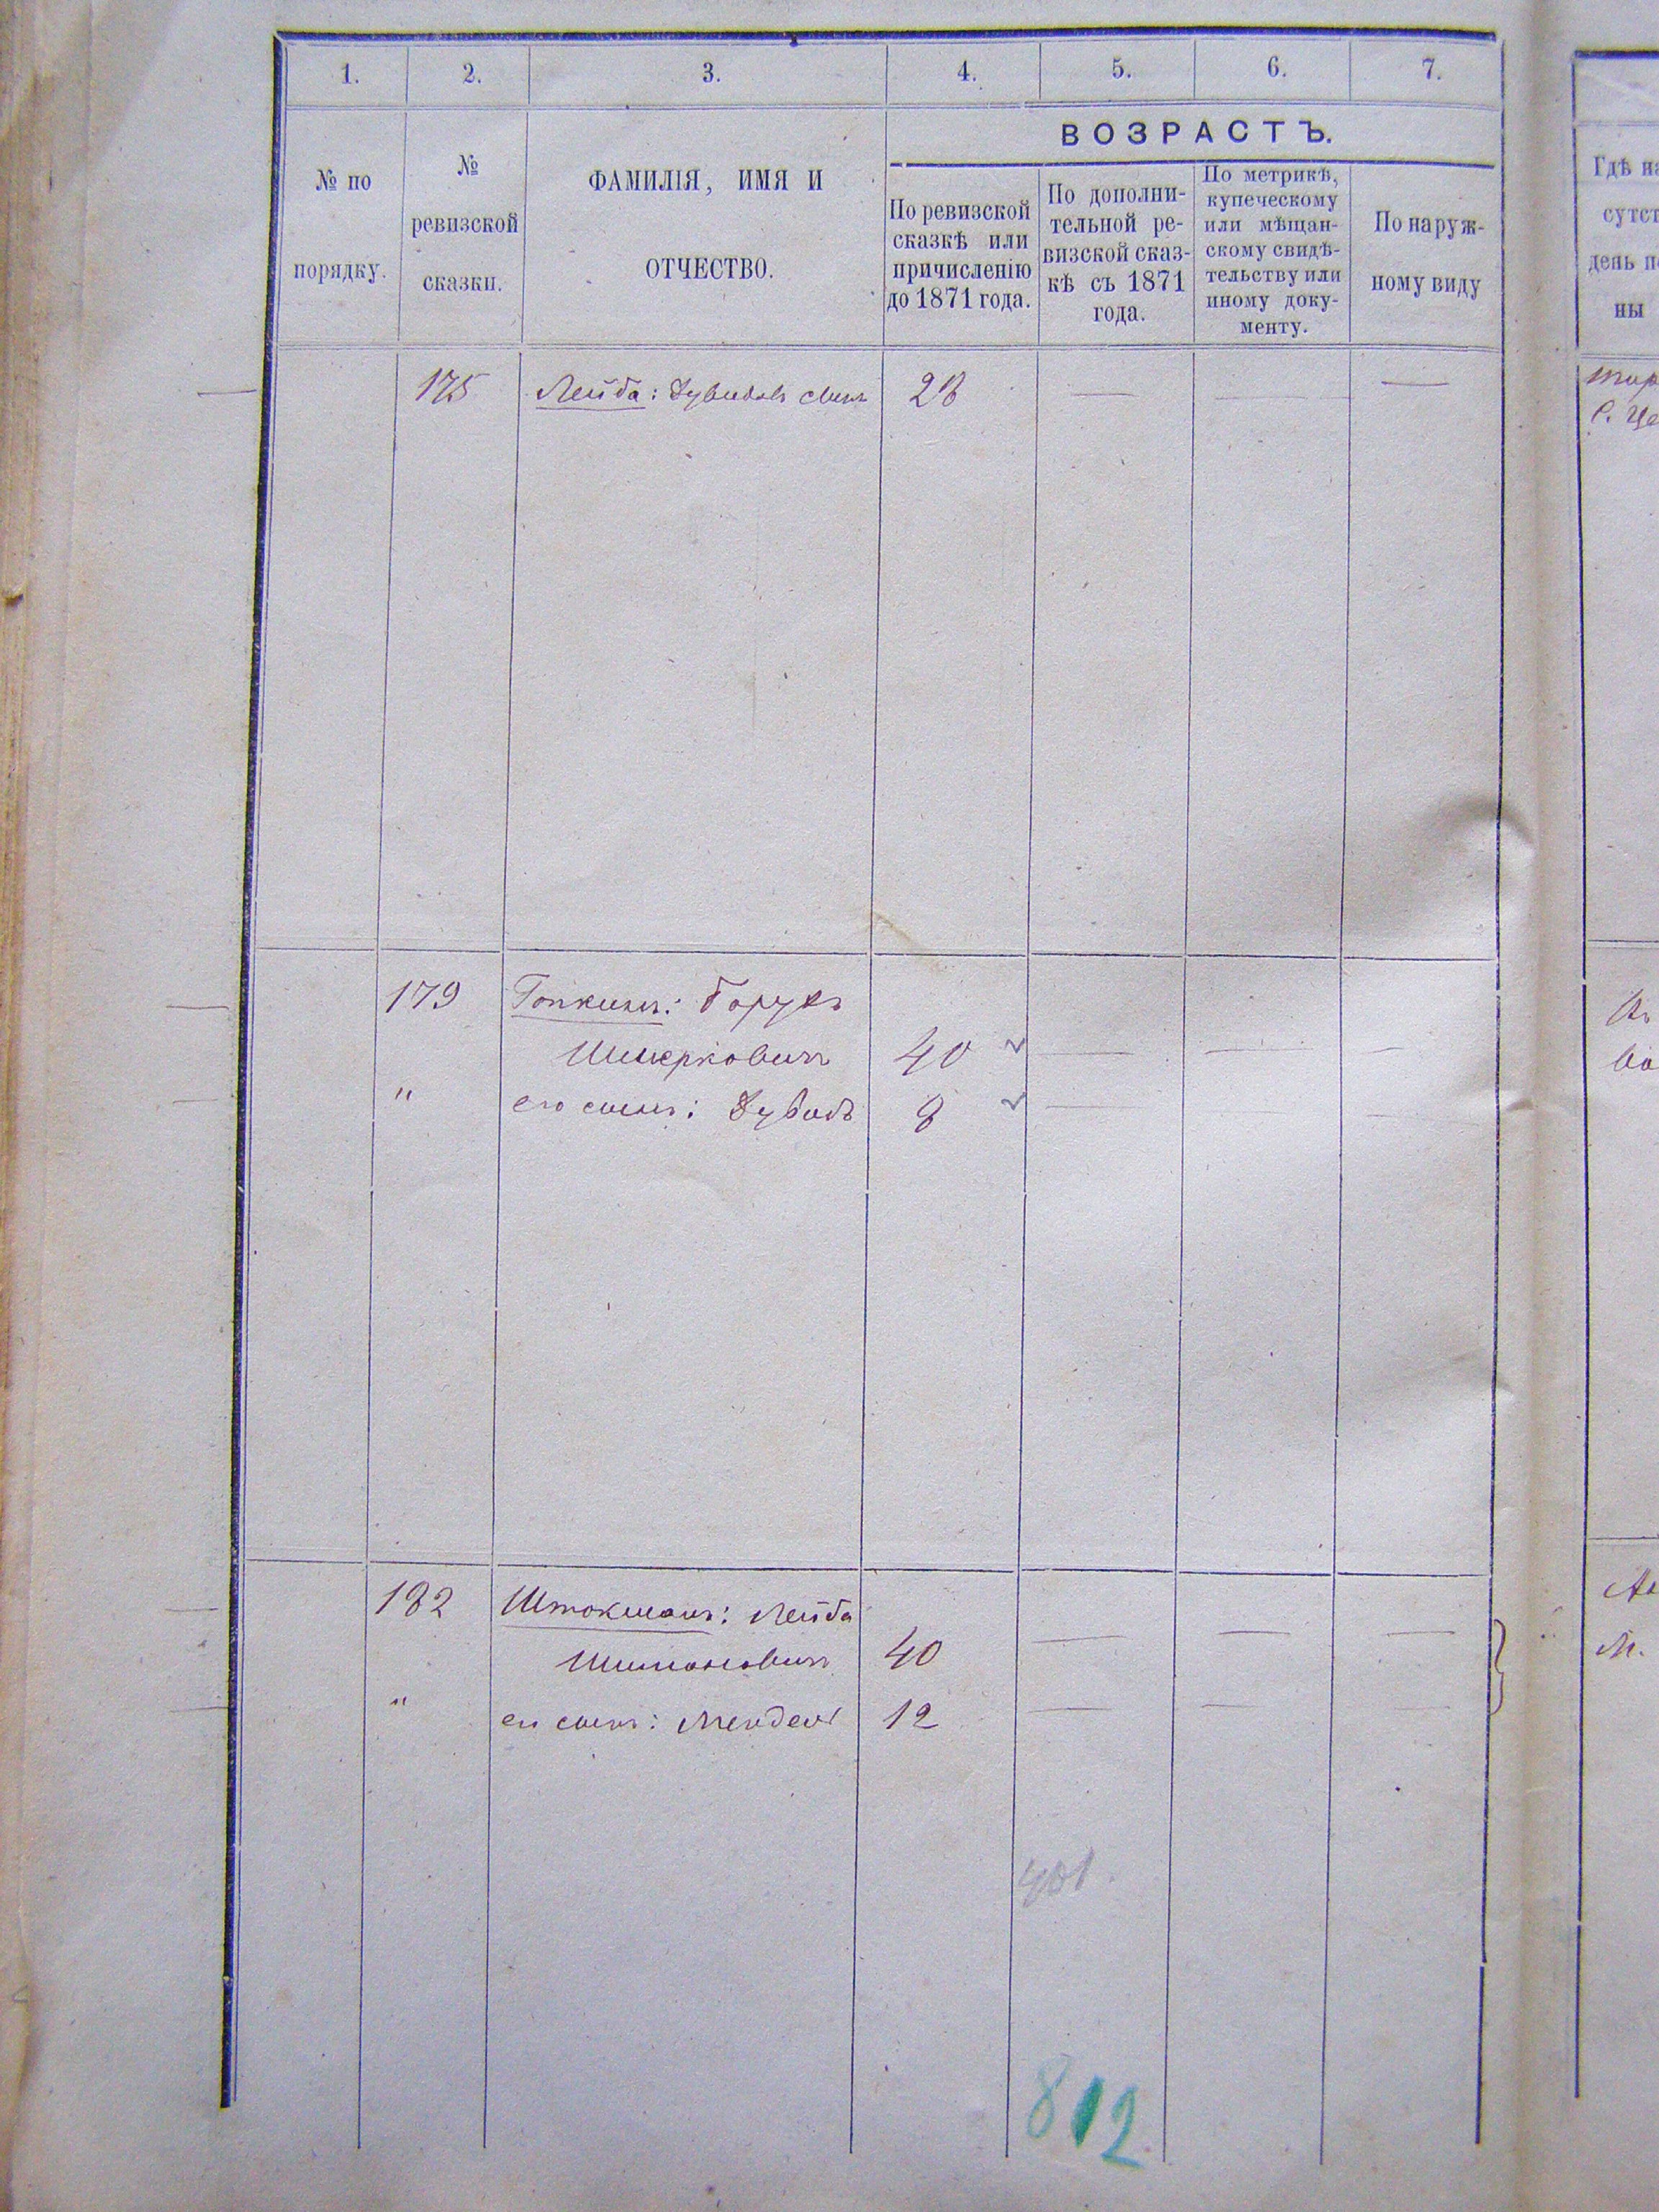 1. 2. 3. 4. 5. 6. 7.
№ по
порядку.
№
ревизской
сказки.
ФАМИЛІЯ, ИМЯ И
ОТЧЕСТВО.
ВОЗРАСТЪ.
По ревизской
сказкѣ или
причисленію
до 1871 года.
По дополни-
тельной ре-
визской сказ-
кѣ съ 1871
года.
По метрикѣ,
купеческому
или мѣщан-
скому свидѣ-
тельству или
иному доку-
менту.
По наруж-
ному виду
Гдѣ на
сутст
день п
ны
175 Лейба: 28 — — —
179 Гопкинъ: Борухъ
Шмерковичъ 40 — — —
" его сынъ: Дувидъ 8 — — —
182 Штокманъ: Лейба
Шимоновичъ 40 — — —
" его сынъ: Мендель 12 — — —
401.
812